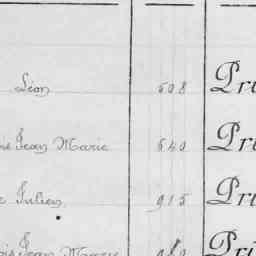 Léon 508 Pri
is Jean Marie 540 Pri
Julien 915 Pri
Jean Marie Pri